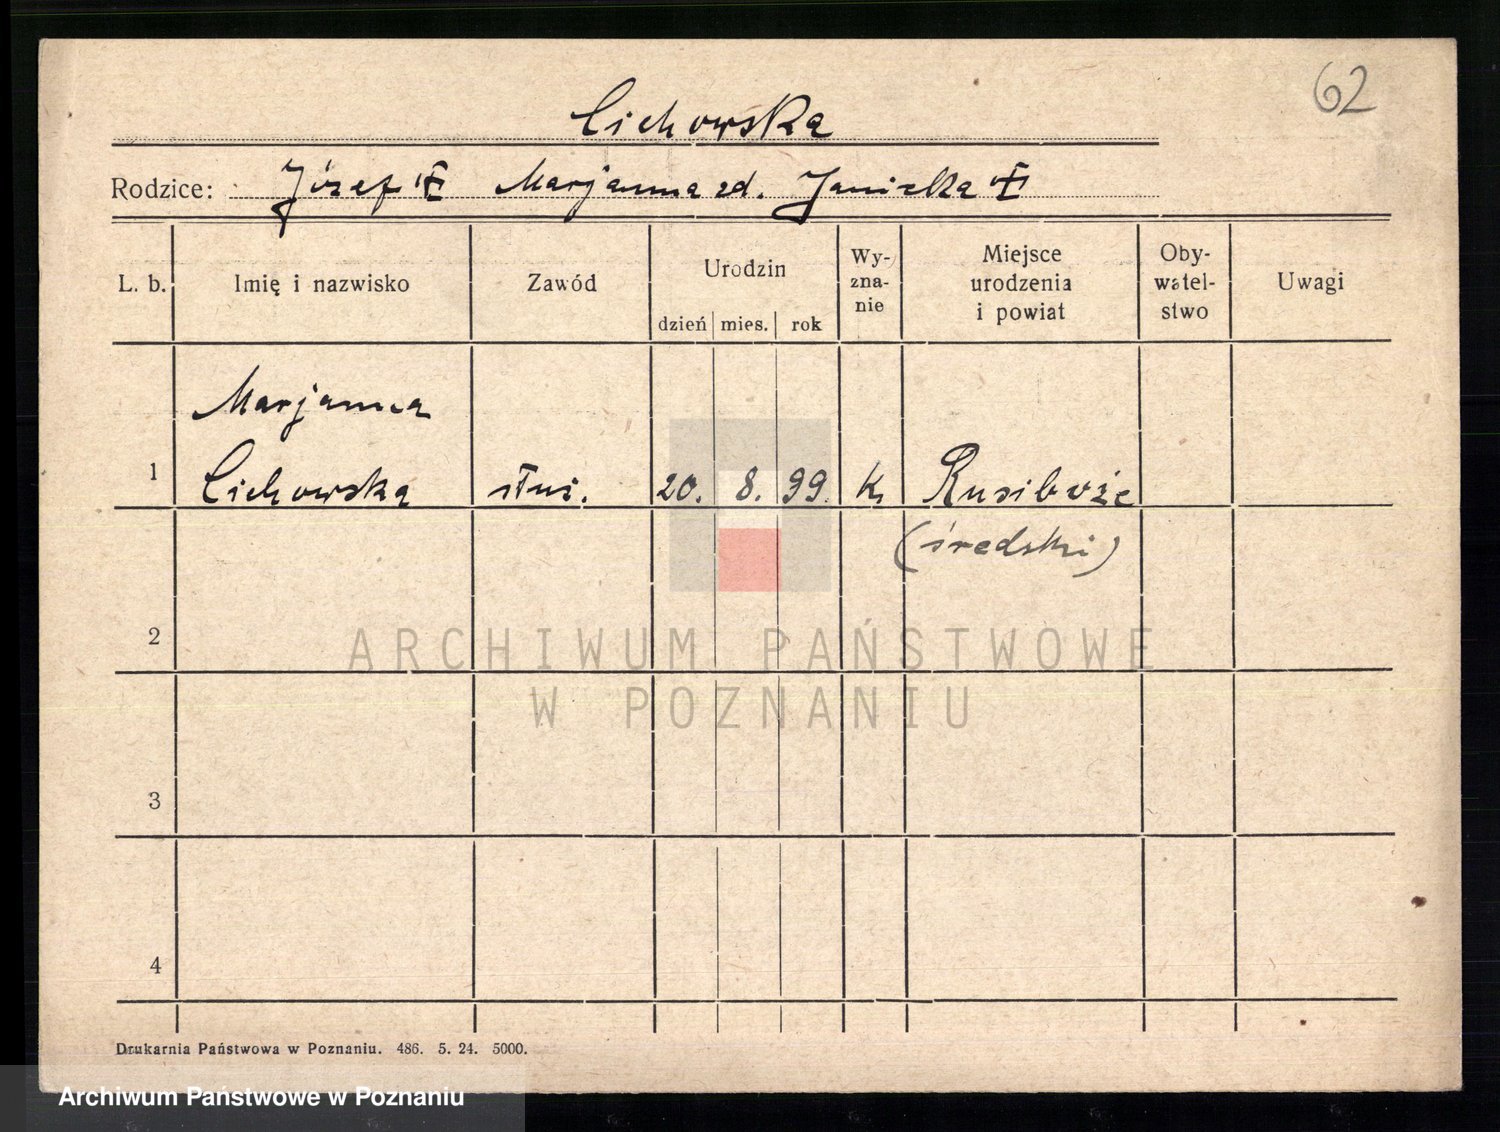 62
Cichowska
Rodzice: Józef Marjanna zd. Janicka
L. b. Imię i nazwisko Zawód Urodzin dzień mies. rok Wy-zna-nie Miejsce urodzenia i powiat Oby-watel-stwo Uwagi
Marjanna
1 Cichowska służ. 20. 8. 99. k. Rusiborze
(średzki)
2
ARCHIWUM PAŃSTWOWE
W POZNANIU
3
4
Drukarnia Państwowa w Poznaniu. 486. 5. 24. 5000.
Archiwum Państwowe w Poznaniu